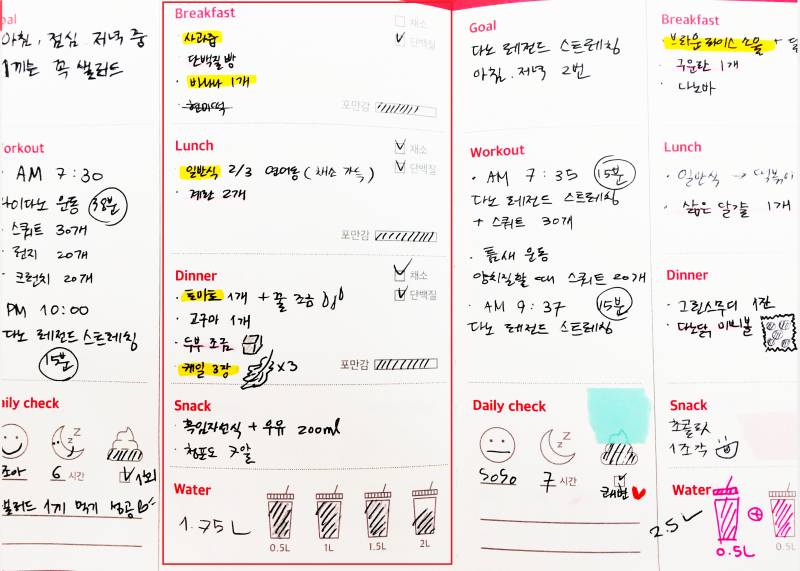 oal
아침, 점심, 저녁 중
1끼는 꼭 샐러드
orkout
AM 7:30
다이다노 운동 38분
· 스쿼트 30개
· 런지 20개
· 크런치 20개
PM 10:00
다노 레전드 스트레칭
15분
aily check
조아
6 시간
1회
샐러드 1끼 먹기 성공
Breakfast
채소
단백질
· 사과즙
단백질빵
· 바나나 1개
· 현미떡
포만감
Lunch
채소
단백질
· 일반식 2/3 연어롱 (채소 가득)
· 계란 2개
포만감
Dinner
채소
단백질
· 토마토 1개 + 꿀 조금
· 고구마 1개
· 두부 조금
· 케일 3장 x3
포만감
Snack
· 흑임자선식 + 우유 200ml
· 청포도 7알
Water
1.75L
0.5L
1L
1.5L
2L
Goal
다노 레전드 스트레칭
아침. 저녁 2번
Workout
· AM 7:35 15분
다노 레전드 스트레칭
+ 스쿼트 30개
· 틈새 운동
양치질할 때 스쿼트 20개
· AM 9:37 15분
다노 레전드 스트레칭
Daily check
SoSo
7 시간
쾌변
Breakfast
· 브라운라이스 소울 +
· 구운란 1개
· 다노바
Lunch
· 일반식 → 떡볶이
· 삶은 달걀 1개
Dinner
· 그린스무디 1잔
· 다노닭 미니볼
Snack
초콜릿
1조각
Water
2.5L
0.5L
0.5L